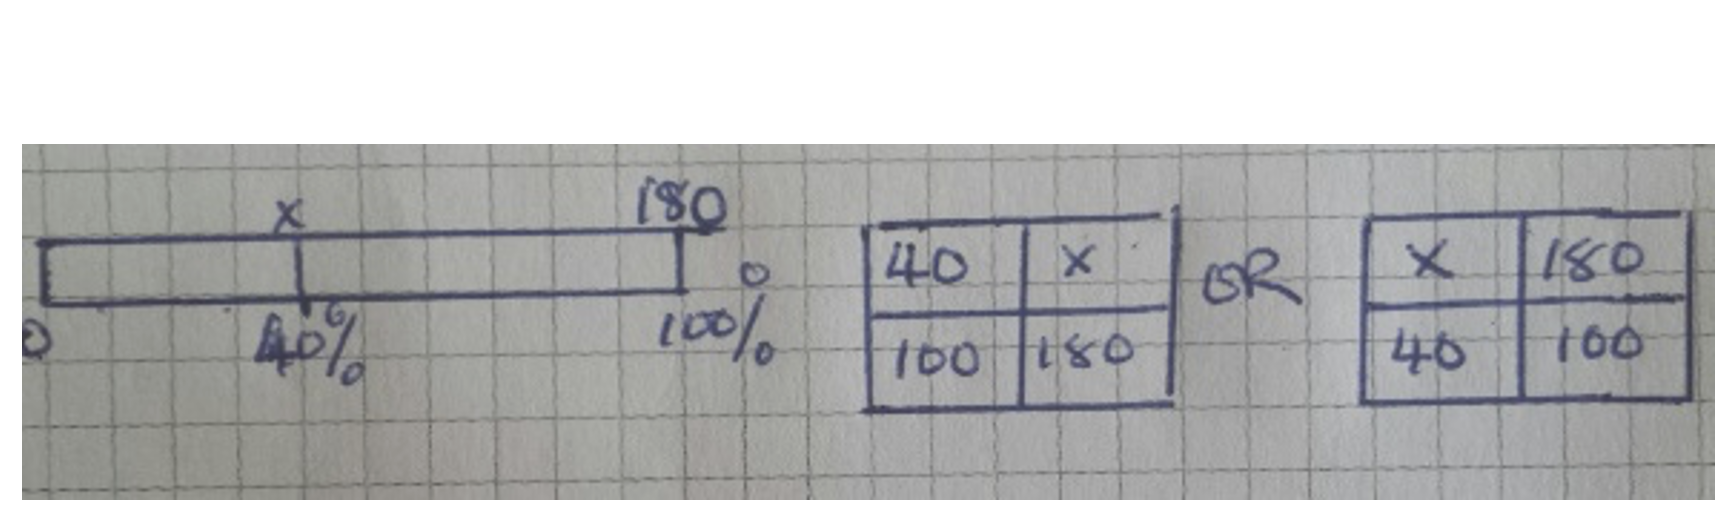 x 180
0 40% 100%
40 x
100 180
OR
x 180
40 100